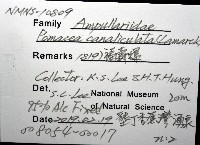 NMNS-10809
Family Ampullariidae
Pomacea canaliculata (Lamarck,
Remarks 1819) 福壽螺
Collector: K.S. Lee & H.T. Hung.
Det. S.C. Lee National Museum 20m
75% Alc Fixed of Natural Science
Date 2019.02.19
008054-00017